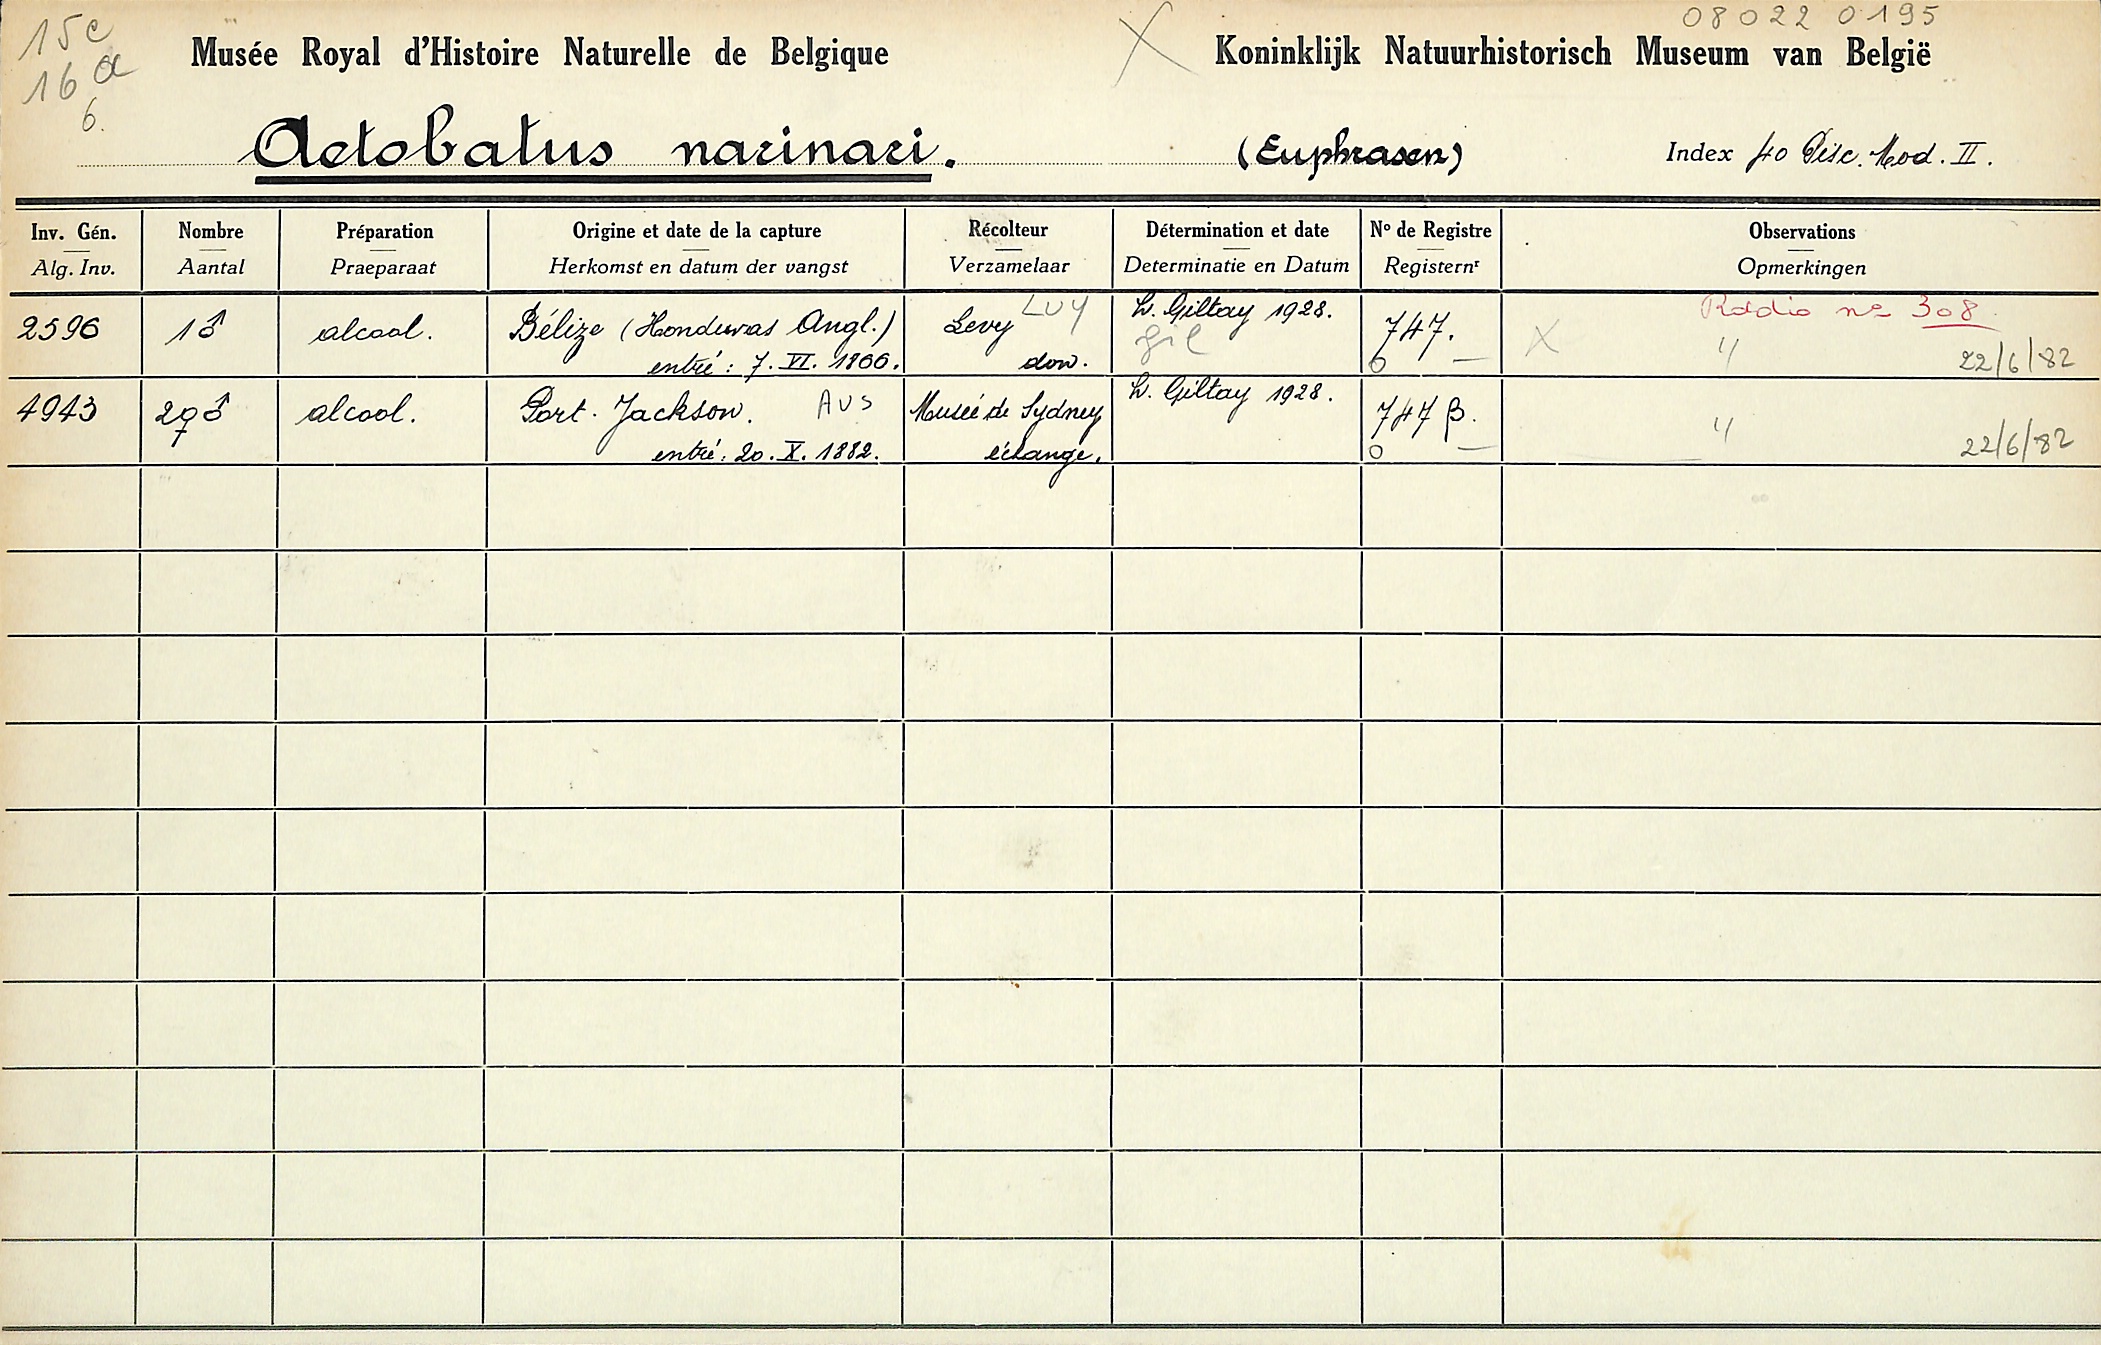 15c
16a
6.
08022 0195
X
Musée Royal d'Histoire Naturelle de Belgique
Koninklijk Natuurhistorisch Museum van België
Aetobatus narinari. (Euphrasen) Index 40 Pisc. Mod. II.
Inv. Gén. Nombre Préparation Origine et date de la capture Récolteur Détermination et date No de Registre Observations
Alg. Inv. Aantal Praeparaat Herkomst en datum der vangst Verzamelaar Determinatie en Datum Registernr Opmerkingen
2596 1♂ alcool. Bélize (Honduras Angl.) Levy LUY L. Giltay 1928. 747. Radio no 308.
entré: 7. VI. 1866. don. Gil 0 — X " 22/6/82
4943 2♀♂ alcool. Port. Jackson. AUS Musée de Sydney L. Giltay 1928. 747 β.
entré: 20. X. 1882. échange. 0 — " 22/6/82